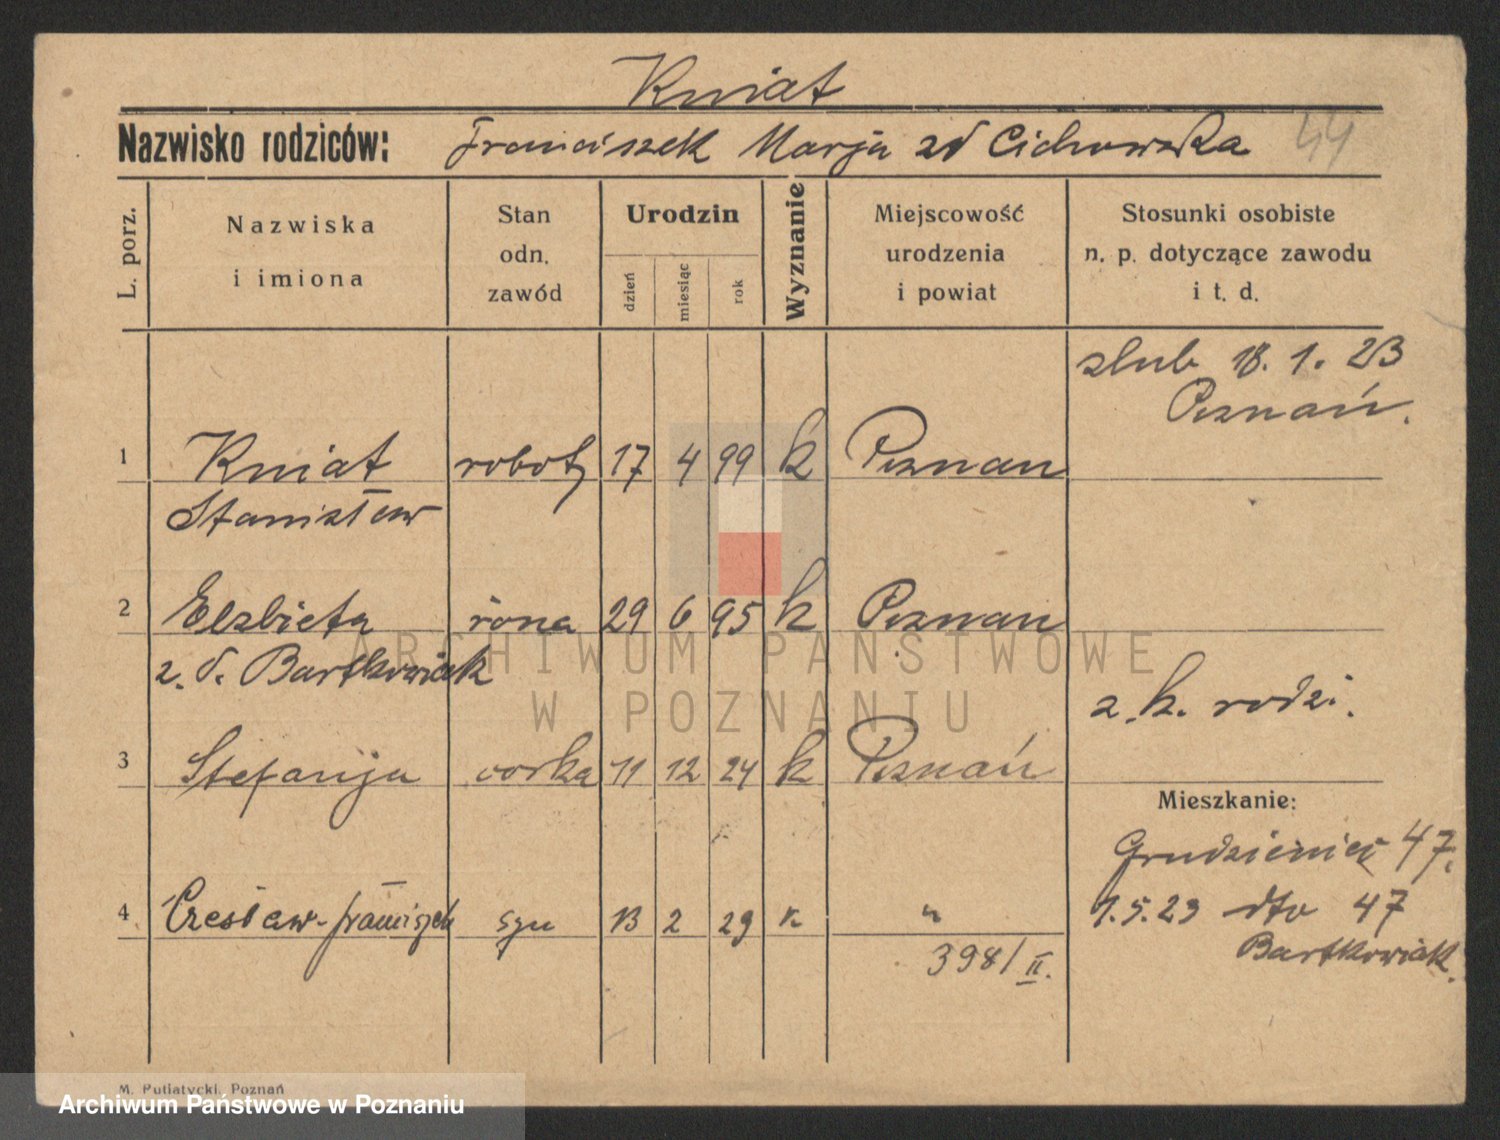 Kniat
Nazwisko rodziców: Franciszek Marja zd Cichowska 44
L. porz.
Nazwiska
i imiona
Stan
odn.
zawód
Urodzin
dzień
miesiąc
rok
Wyznanie
Miejscowość
urodzenia
i powiat
Stosunki osobiste
n. p. dotyczące zawodu
i t. d.
slub 18. 1. 23
Poznań.
1 Kniat robotn 17 4 99 k Poznan
Stanisław
2 Elzbieta żona 29 6 95 k Poznan
z. d. Bartkowiak
z. k. rodzi.
3 Stefanija corka 11 12 24 k Poznań
Mieszkanie:
Grudzieniec 47.
4 Czesław-franciszek syn 13 2 29 k "
1.5.23 dto 47
Bartkowiak.
398/II.
M. Putiatycki, Poznań
ARCHIWUM PAŃSTWOWE
W POZNANIU
Archiwum Państwowe w Poznaniu